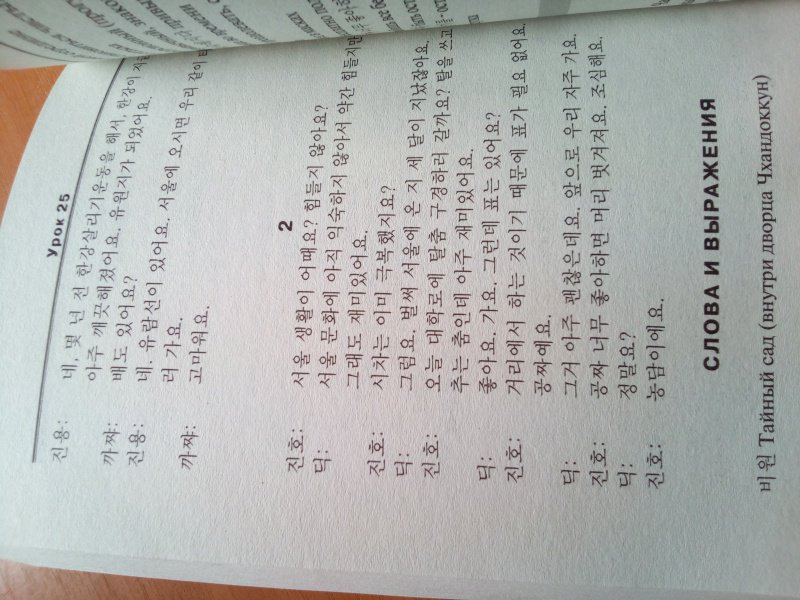 Урок 25
진용: 네, 몇 년 전 한강살리기운동을 해서, 한강이
아주 깨끗해졌어요. 유원지가 되었어요.
까쨔: 배도 있어요?
진용: 네. 유람선이 있어요. 서울에 오시면 우리 같이
러 가요.
까쨔: 고마워요.
2
진호: 서울 생활이 어때요? 힘들지 않아요?
딕: 서울 문화에 아직 익숙하지 않아서 약간 힘들지만
그래도 재미있어요.
진호: 시차는 이미 극복했지요?
딕: 그럼요. 벌써 서울에 온 지 세 달이 지났잖아요.
진호: 오늘 대학로에 탈춤 구경하러 갈까요? 탈을 쓰고
추는 춤인데 아주 재미있어요.
딕: 좋아요. 가요. 그런데 표는 있어요?
진호: 거리에서 하는 것이기 때문에 표가 필요 없어요.
공짜예요.
딕: 그거 아주 괜찮은데요. 앞으로 우리 자주 가요.
진호: 공짜 너무 좋아하면 머리 벗겨져요. 조심해요.
딕: 정말요?
진호: 농담이에요.
СЛОВА И ВЫРАЖЕНИЯ
비원 Тайный сад (внутри дворца Чхандоккун)